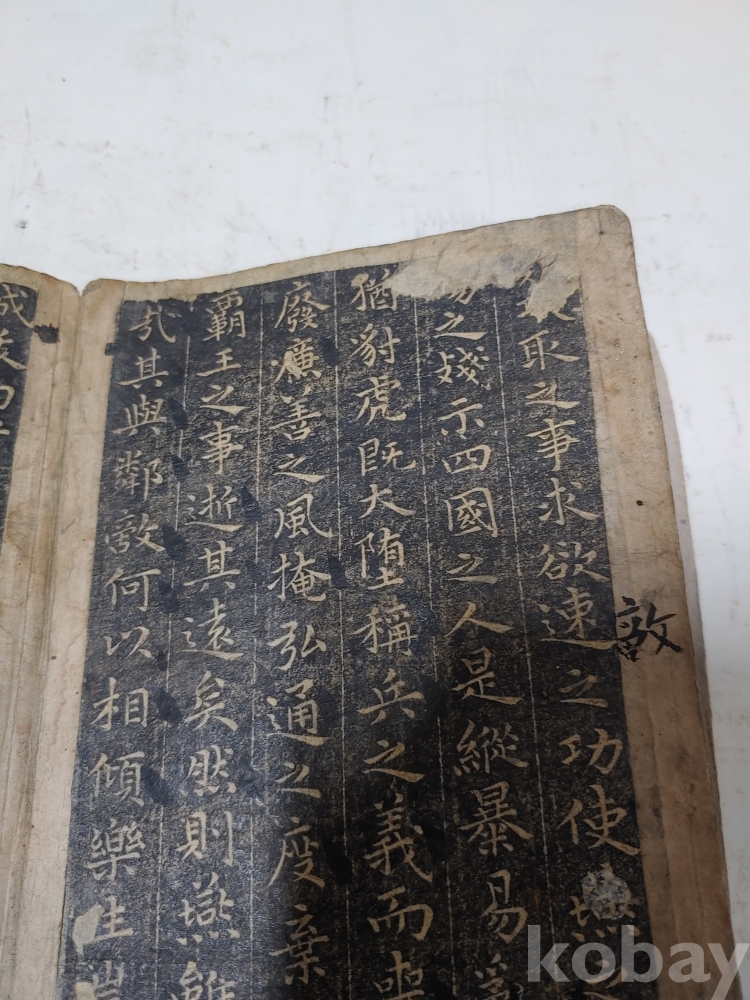 取之事求欲速之功使
之殘示四國之人是縱暴易亂
猶豺虎既大堕稱兵之義而喪
廢廉善之風掩弘通之度棄
霸王之事逝其遠矣然則燕雖
哉其與鄰敵何以相傾樂生豈
城
kobay